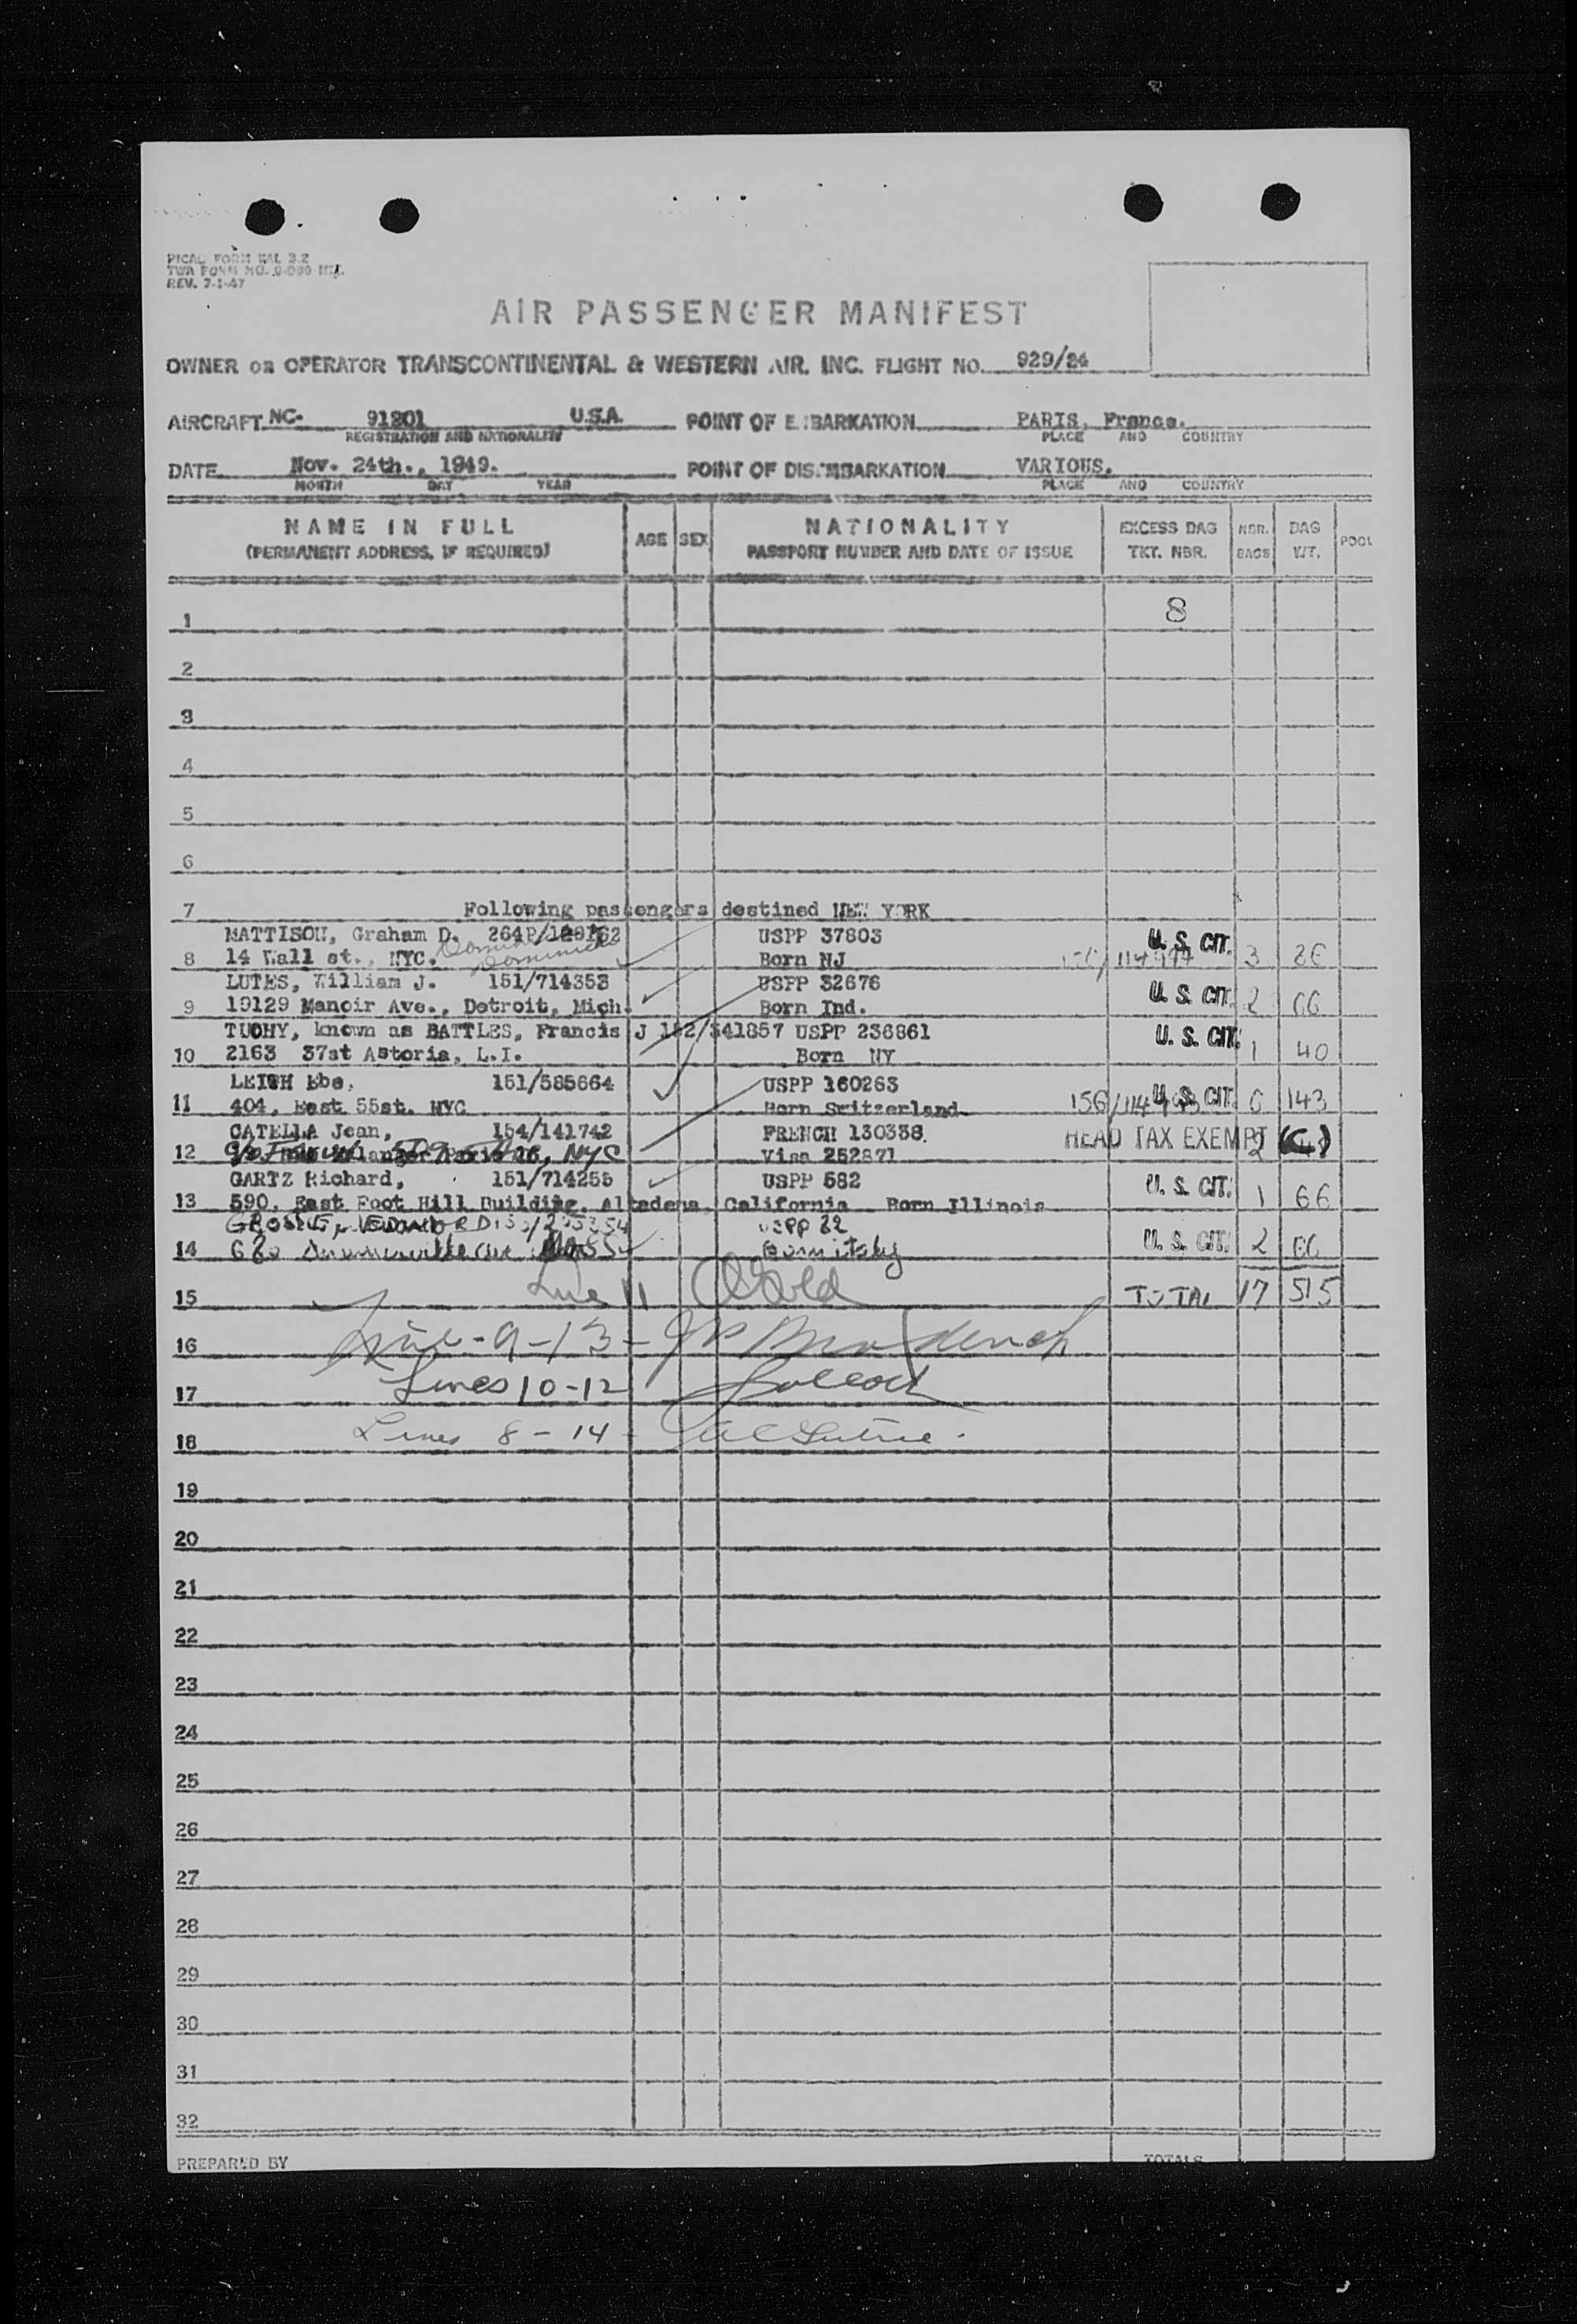 PICAO FORM
TWA FORM NO.
REV. 7-1-47
AIR PASSENGER MANIFEST
OWNER OR OPERATOR TRANSCONTINENTAL & WESTERN AIR. INC. FLIGHT NO. 929/24
AIRCRAFT NC- 91201 U.S.A. POINT OF EMBARKATION PARIS, France.
REGISTRATION AND NATIONALITY PLACE AND COUNTRY
DATE Nov. 24th., 1949. POINT OF DISEMBARKATION VARIOUS.
MONTH DAY YEAR PLACE AND COUNTRY
NAME IN FULL AGE SEX NATIONALITY EXCESS BAG NBR. BAG POOL
(PERMANENT ADDRESS, IF REQUIRED) PASSPORT NUMBER AND DATE OF ISSUE TKT. NBR. BAGS WT.
1 8
2
3
4
5
6
7 Following passengers destined NEW YORK
MATTISON, Graham D. USPP 37803 U.S. CIT.
8 14 Wall st., NYC. Dominick Born NJ 3
LUTES, William J. 151/714353 USPP 32676 U.S. CIT.
9 19129 Manoir Ave., Detroit, Mich. Born Ind. 2 66
TUOHY, known as BATTLES, Francis J 152/341857 USPP 236861 U.S. CIT.
10 2163 37st Astoria, L.I. Born NY 1 40
LEIGH Ebe, 151/585664 USPP 160263 U.S. CIT.
11 404, East 55st. NYC Born Switzerland 6 143
CATELLA Jean, 154/141742 FRENCH 130338 HEAD TAX EXEMPT (C)
12 NYC Visa 252871 2
GARTZ Richard, 151/714255 USPP 582 U.S. CIT.
13 590, East Foot Hill Building, Altadena, California Born Illinois 1 66
USPP 22
14 MASS Born Italy U.S. CIT. 2 66
15 Line 11 Gold TOTAL 17 515
16 Line - 9 - 13 -
17 Lines 10-12
18 Lines 8 - 14 -
19
20
21
22
23
24
25
26
27
28
29
30
31
32
PREPARED BY TOTALS